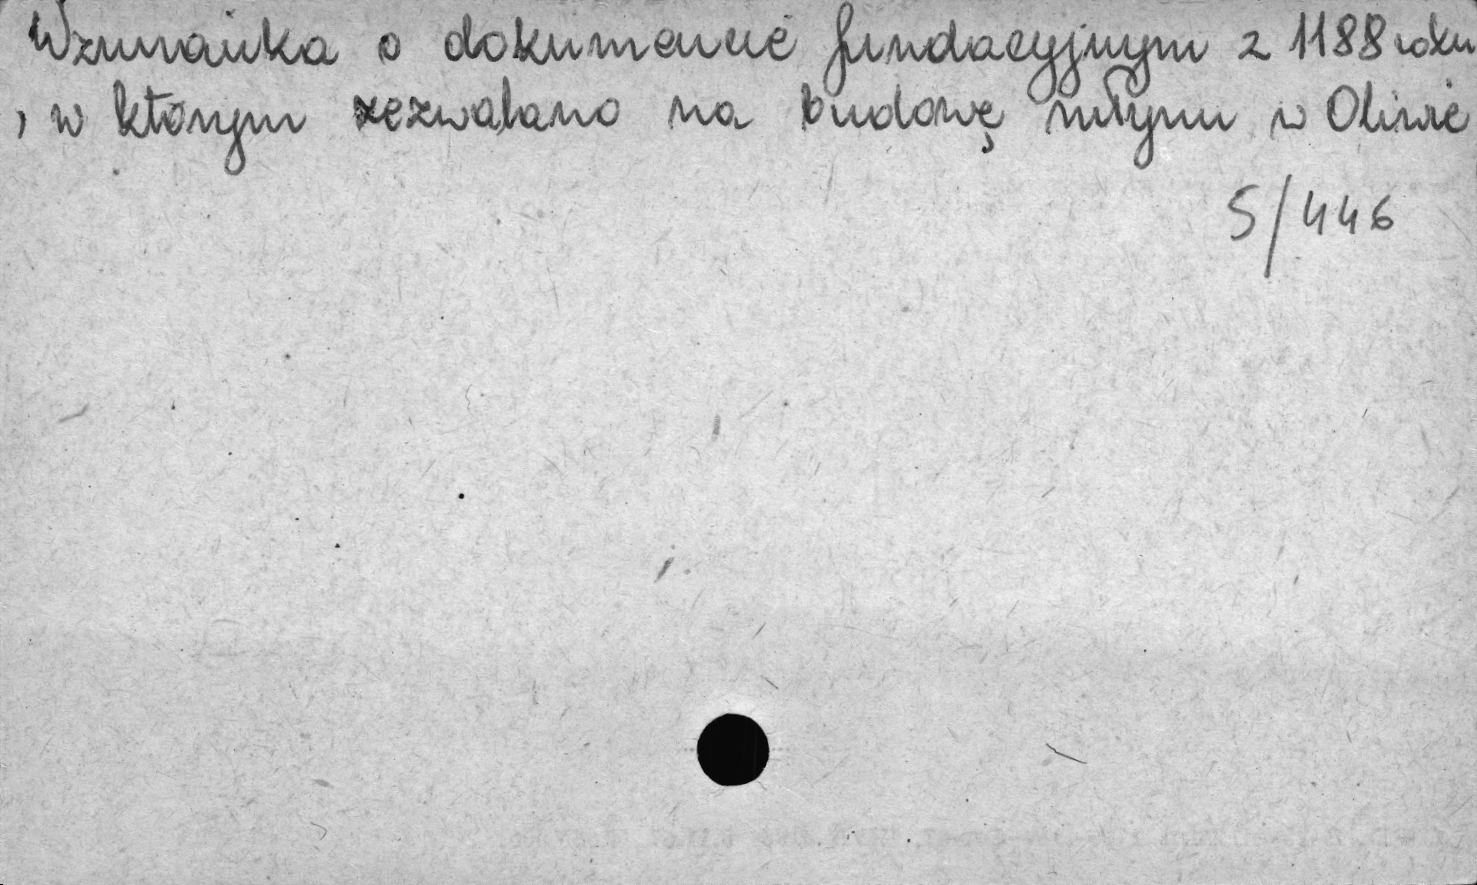 Wzmianka o dokumencie fundacyjnym z 1188 roku
, w którym zezwalano na budowę młynu w Oliwie
S/446